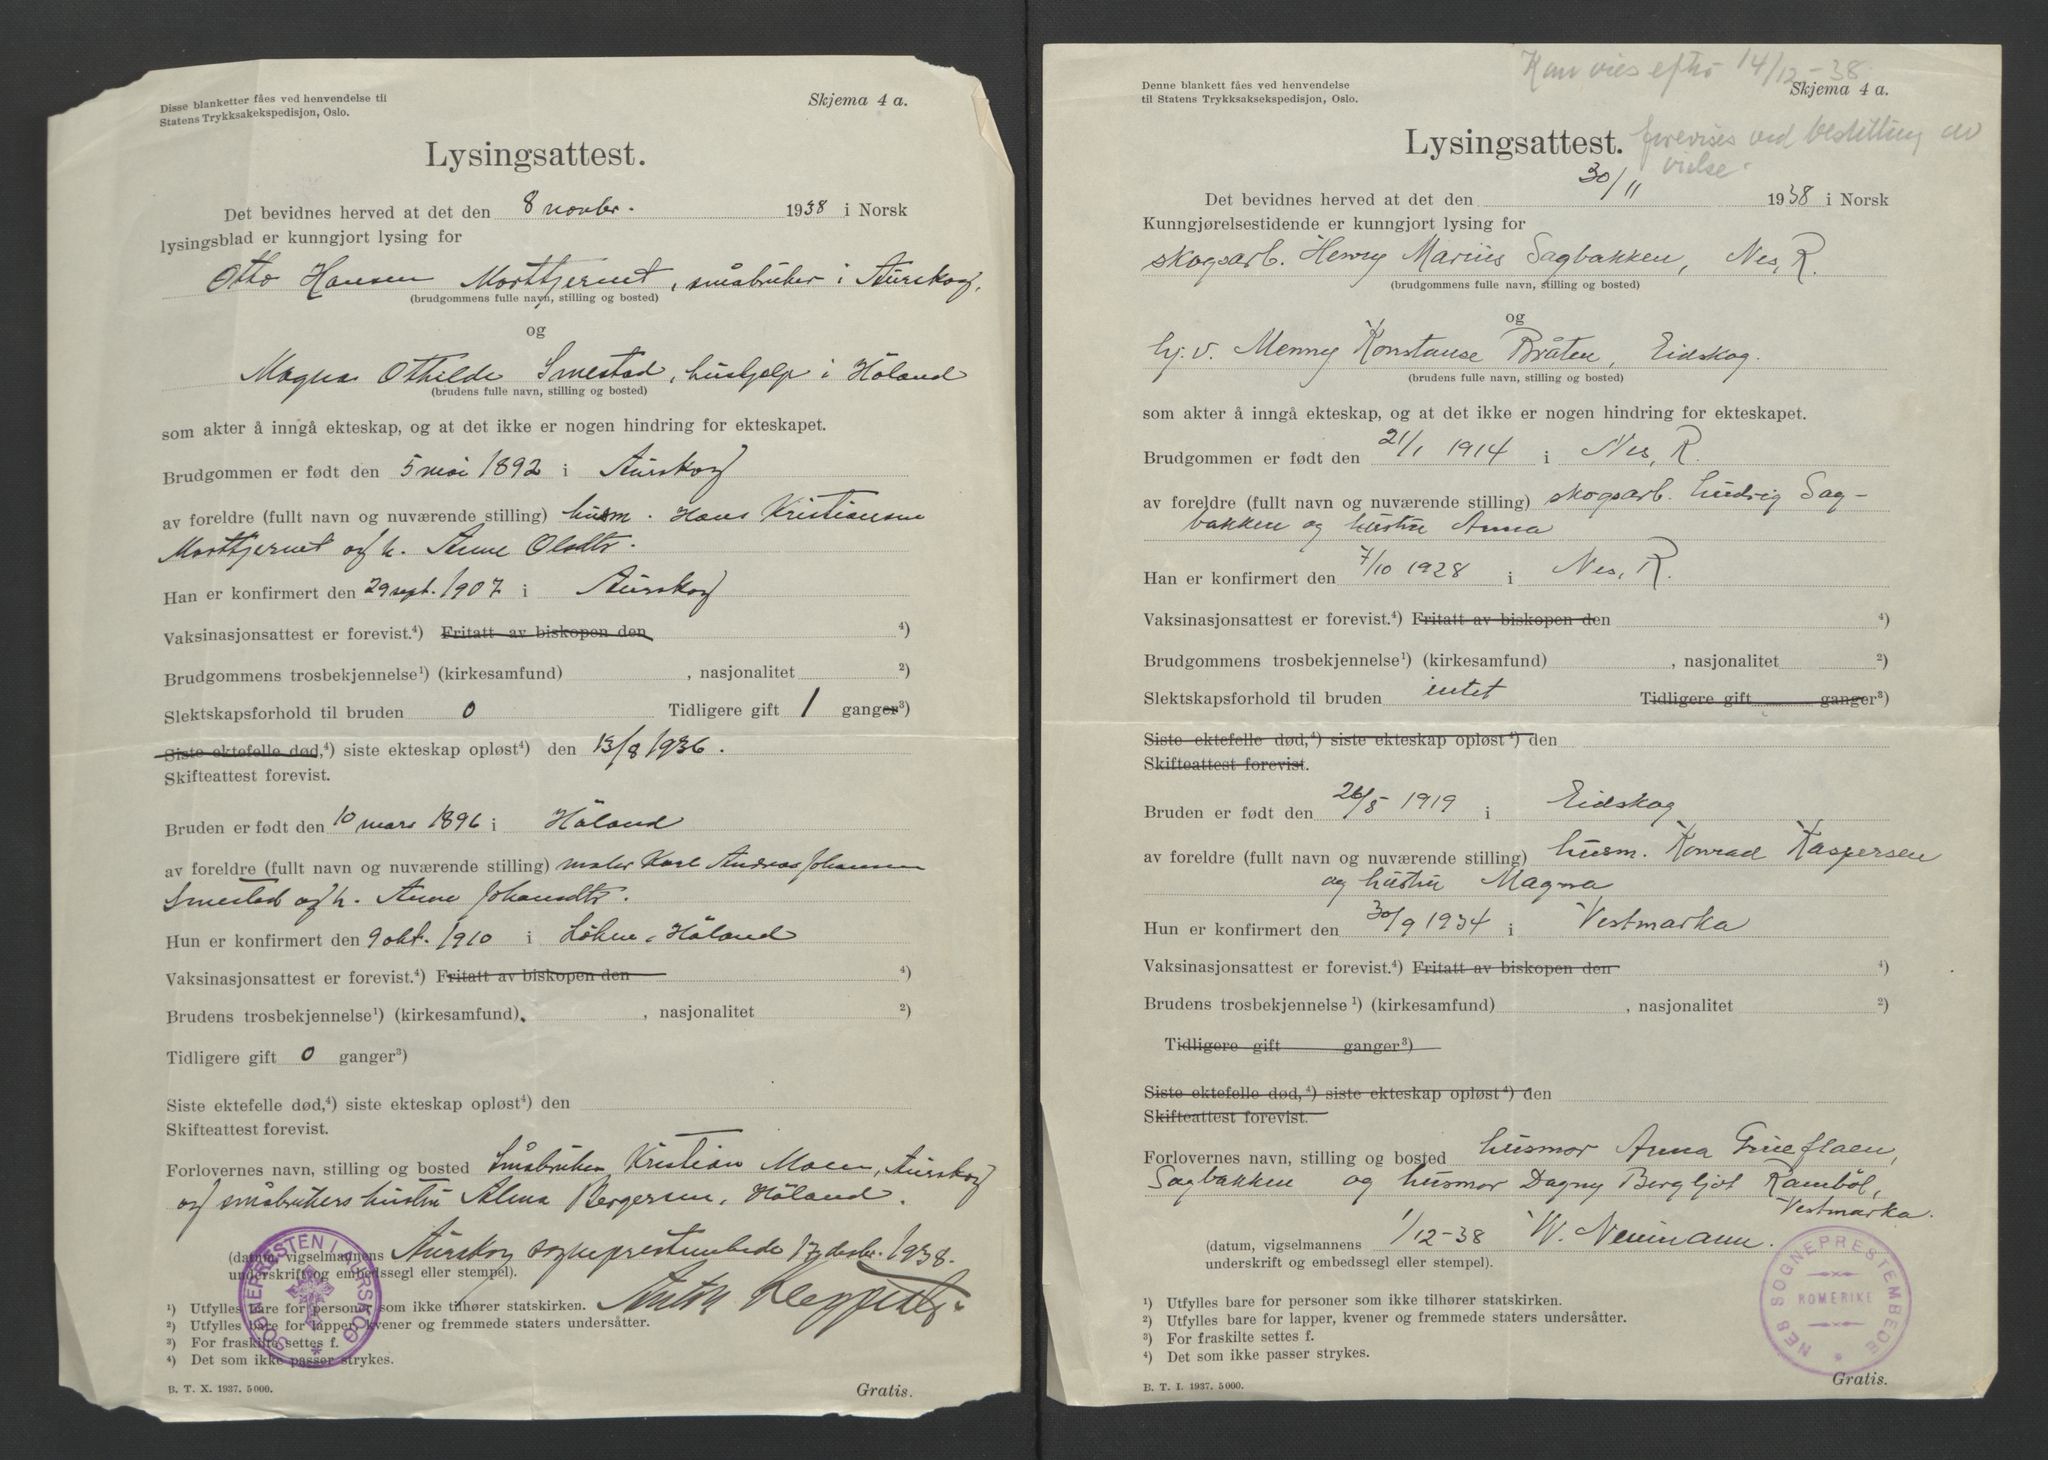 Disse blanketter fåes ved henvendelse til
Statens Trykksakekspedisjon, Oslo.
Skjema 4 a.
Lysingsattest.
Det bevidnes herved at det den 8 novbr. 1938 i Norsk
lysingsblad er kunngjort lysing for
Otto Hansen Morttjernet, småbruker i Aurskog,
(brudgommens fulle navn, stilling og bosted)
og
Magna Othilde Smestad, hushjelp i Höland
(brudens fulle navn, stilling og bosted)
som akter å inngå ekteskap, og at det ikke er nogen hindring for ekteskapet.
Brudgommen er født den 5 mai 1892 i Aurskog
av foreldre (fullt navn og nuværende stilling) husm. Hans Kristiansen
Morttjernet og h. Anne Olsdtr.
Han er konfirmert den 29 sept. 1907 i Aurskog
Vaksinasjonsattest er forevist.⁴) Fritatt av biskopen den ⁴)
Brudgommens trosbekjennelse¹) (kirkesamfund) , nasjonalitet ²)
Slektskapsforhold til bruden 0 Tidligere gift 1 ganger³)
Siste ektefelle død,⁴) siste ekteskap opløst⁴) den 13/8 1936.
Skifteattest forevist.
Bruden er født den 10 mars 1896 i Höland
av foreldre (fullt navn og nuværende stilling) maler Karl Andreas Johansen
Smestad og h. Anne Johansdtr.
Hun er konfirmert den 9 okt. 1910 i Löken, Höland
Vaksinasjonsattest er forevist.⁴) Fritatt av biskopen den ⁴)
Brudens trosbekjennelse¹) (kirkesamfund) , nasjonalitet ²)
Tidligere gift 0 ganger³)
Siste ektefelle død,⁴) siste ekteskap opløst⁴) den
Skifteattest forevist.
Forlovernes navn, stilling og bosted Småbruker Kristian Moen, Aurskog
og småbrukers hustru Alma Bergersen, Höland.
(datum, vigselmannens Aurskog sogneprestembede 17 desbr. 1938.
underskrift og embedssegl eller stempel).
SOGNEPRESTEN I AURSKOG
¹) Utfylles bare for personer som ikke tilhører statskirken.
²) Utfylles bare for lapper, kvener og fremmede staters undersåtter.
³) For fraskilte settes f.
⁴) Det som ikke passer strykes.
B. T. X. 1937. 5000.
Gratis.
Kan vies efter 14/12-38.
Denne blankett fåes ved henvendelse
til Statens Trykksaksekspedisjon, Oslo.
Skjema 4 a.
Lysingsattest.
forevises ved bestilling av
vielse.
Det bevidnes herved at det den 30/11 1938 i Norsk
Kunngjørelsestidende er kunngjort lysing for
skogsarb. Henry Marius Sagbakken, Nes, R.
(brudgommens fulle navn, stilling og bosted)
og
hj. v. Menny Konstanse Bråten, Eidskog.
(brudens fulle navn, stilling og bosted)
som akter å inngå ekteskap, og at det ikke er nogen hindring for ekteskapet.
Brudgommen er født den 21/1 1914 i Nes, R.
av foreldre (fullt navn og nuværende stilling) skogsarb. Ludvig Sag-
bakken og hustru Anna
Han er konfirmert den 7/10 1928 i Nes, R.
Vaksinasjonsattest er forevist.⁴) Fritatt av biskopen den ⁴)
Brudgommens trosbekjennelse¹) (kirkesamfund) , nasjonalitet ²)
Slektskapsforhold til bruden intet Tidligere gift ganger³)
Siste ektefelle død,⁴) siste ekteskap opløst⁴) den
Skifteattest forevist.
Bruden er født den 26/5 1919 i Eidskog
av foreldre (fullt navn og nuværende stilling) husm. Konrad Kaspersen
og hustru Magna
Hun er konfirmert den 30/9 1934 i Vestmarka
Vaksinasjonsattest er forevist.⁴) Fritatt av biskopen den ⁴)
Brudens trosbekjennelse¹) (kirkesamfund) , nasjonalitet ²)
Tidligere gift ganger³)
Siste ektefelle død,⁴) siste ekteskap opløst⁴) den
Skifteattest forevist.
Forlovernes navn, stilling og bosted husmor Anna
Sagbakken og husmor Dagny Bergljot Ramböl,
Vestmarka.
(datum, vigselmannens 1/12-38 W. Neumann.
underskrift og embedssegl eller stempel).
NES SOGNEPRESTEMBEDE
ROMERIKE
¹) Utfylles bare for personer som ikke tilhører statskirken.
²) Utfylles bare for lapper, kvener og fremmede staters undersåtter.
³) For fraskilte settes f.
⁴) Det som ikke passer strykes.
B. T. I. 1937. 5000.
Gratis.